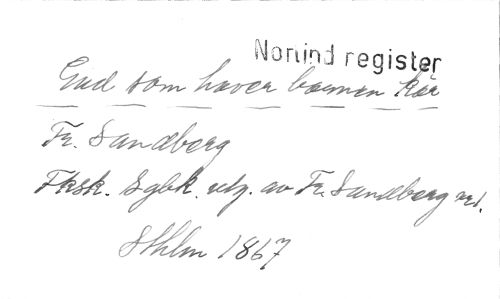 Norlind register
Gud som haver barnen kär
Fr. Sandberg
Fksk. Sgbk. utg. av Fr. Sandberg
Sthlm 1867